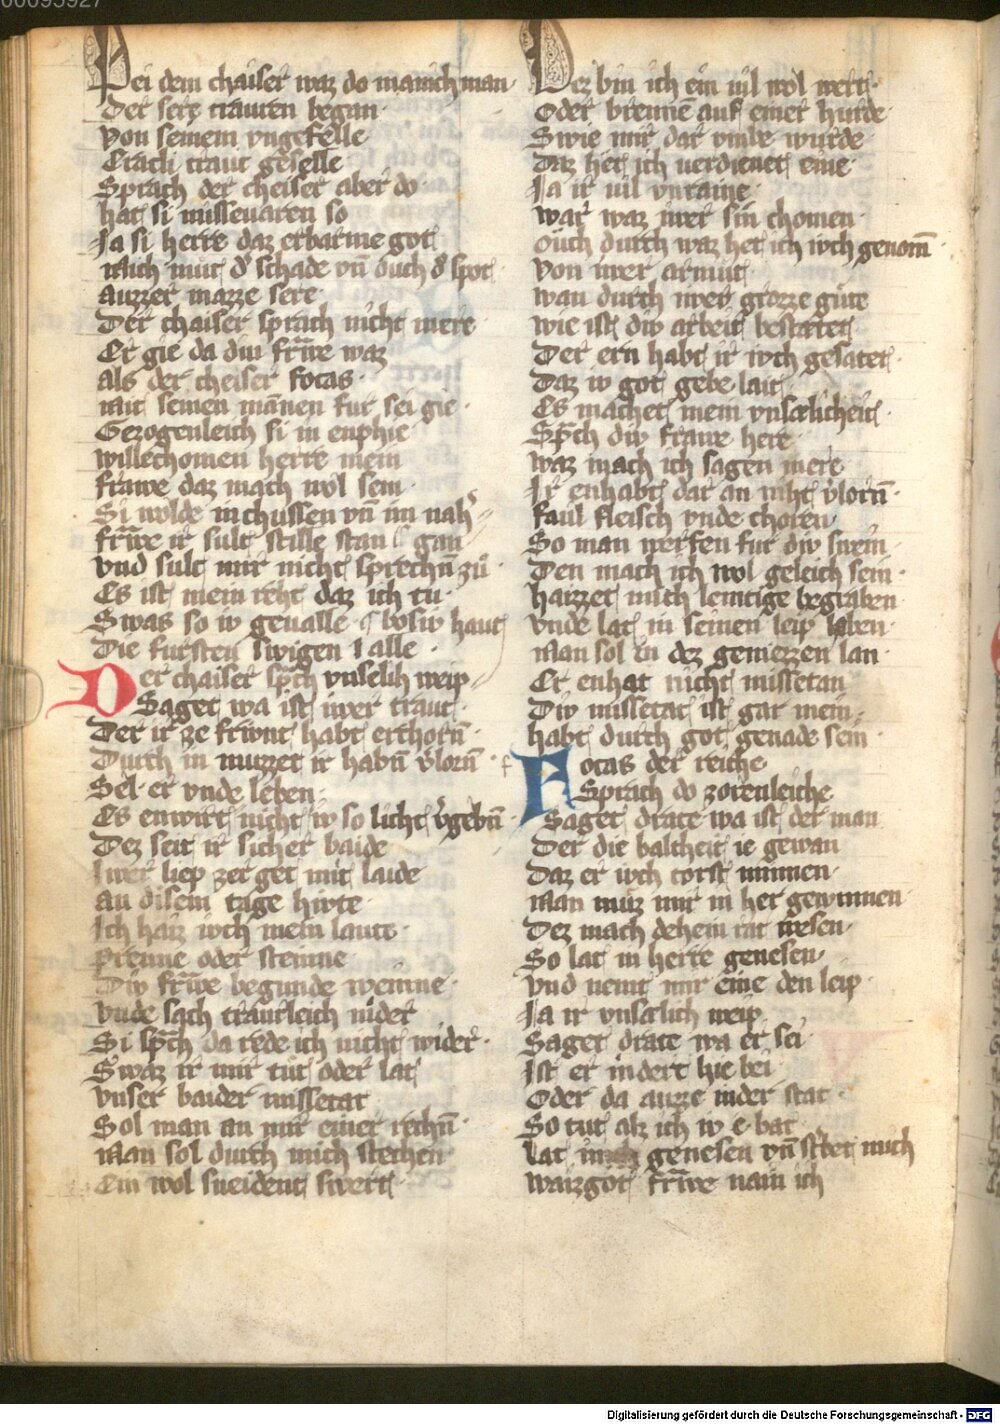 00095927
Pei dem chaiser waz do manich man
Der sere trauren began
Von seinem vngefelle
Eracli traut geselle
Sprach der cheiser aber do
hat si misseuaren so
Ja si herre daz erbarme got
Mich mut d' schade vn̄ ouch d' spot
auzzer mazze sere
Der chaiser sprach nicht mere
Er gie da diu frawe waz
als der cheiser focas
Mit seinen mannen fur sei gie
Gezogenleich si in enphie
willechomen herre mein
frawe daz mach wol sein
Si wolde in chussen vn̄ im nah'
frawe ir sult stille stan gan
vnd sult mir nicht sprechn̄ zů
Es ist mein reht daz ich tu
Swas so iv geualle bosiv haut
Die fursten swigen alle
Der chaiser sp̄ch vnselih weip
Saget wa ist iwer traut
Der ir ze friwnt habt erchorn̄
Durch in muzzet ir habn̄ v'lorn̄
Sel er vnde leben
Es enwirt nicht iv so licht v'gebn̄
Dez seit ir sicher baide
Iwer liep zerget mit laide
an disem tage hivte
Ich haiz iwch mein laute
Prenne oder steinne
Div frawe begunde weinne
Vnde sach traurleich nider
Si sp̄ch da rede ich nicht wider
Swaz ir mir tut oder lat
vnser baider missetat
Sol man an mir einer rechn̄
Man sol durch mich stechen
Ein wol sneident swert
Dez bin ich ein vil wol wert
Oder brennē auf einer hurde
Swie mir dar vmbe wurde
Daz het ich verdienet eine
Ja ir vil vnraine
war waz iwer sin chomen
ouch durch waz het ich iwch genom̄
Von iwer armut
wan durch iwer grozze gute
wie ist div arbeit bestatet
Der ern habt ir iwch gesatet
Daz iv got gebe lait
Es machet mein vnsælicheit
Sp̄ch div frawe here
waz mach ich sagen mere
Ir enhabt dar an niht v'lorn̄
faul fleisch vnde choren
So man werfen fur div swein
Den mach ich wol geleich sein
haizzet mich lemtige begraben
vnde lat in seinen leip haben
Man sol in dez geniezzen lan
Er enhat nicht missetan
Div missetat ist gar mein
habt durch got genade sein
Focas der reiche
Sprach do zorenleiche
Saget drate wa ist der man
Der die balcheit ie gewan
Daz er iwch torst minnen
Man muz mir in her gewinnen
Dez mach dehein rat wesen
So lat in herre genesen
vnd nemt mir eine den leip
Ja ir vnsælich weip
Saget drate wa er sei
Ist er indert hie bei
Oder da auzze inder stat
So tut alz ich iv e bat
Lat in genesen vn̄ st'bet mich
waizgot frawe nain ich
Digitalisierung gefördert durch die Deutsche Forschungsgemeinschaft - DFG